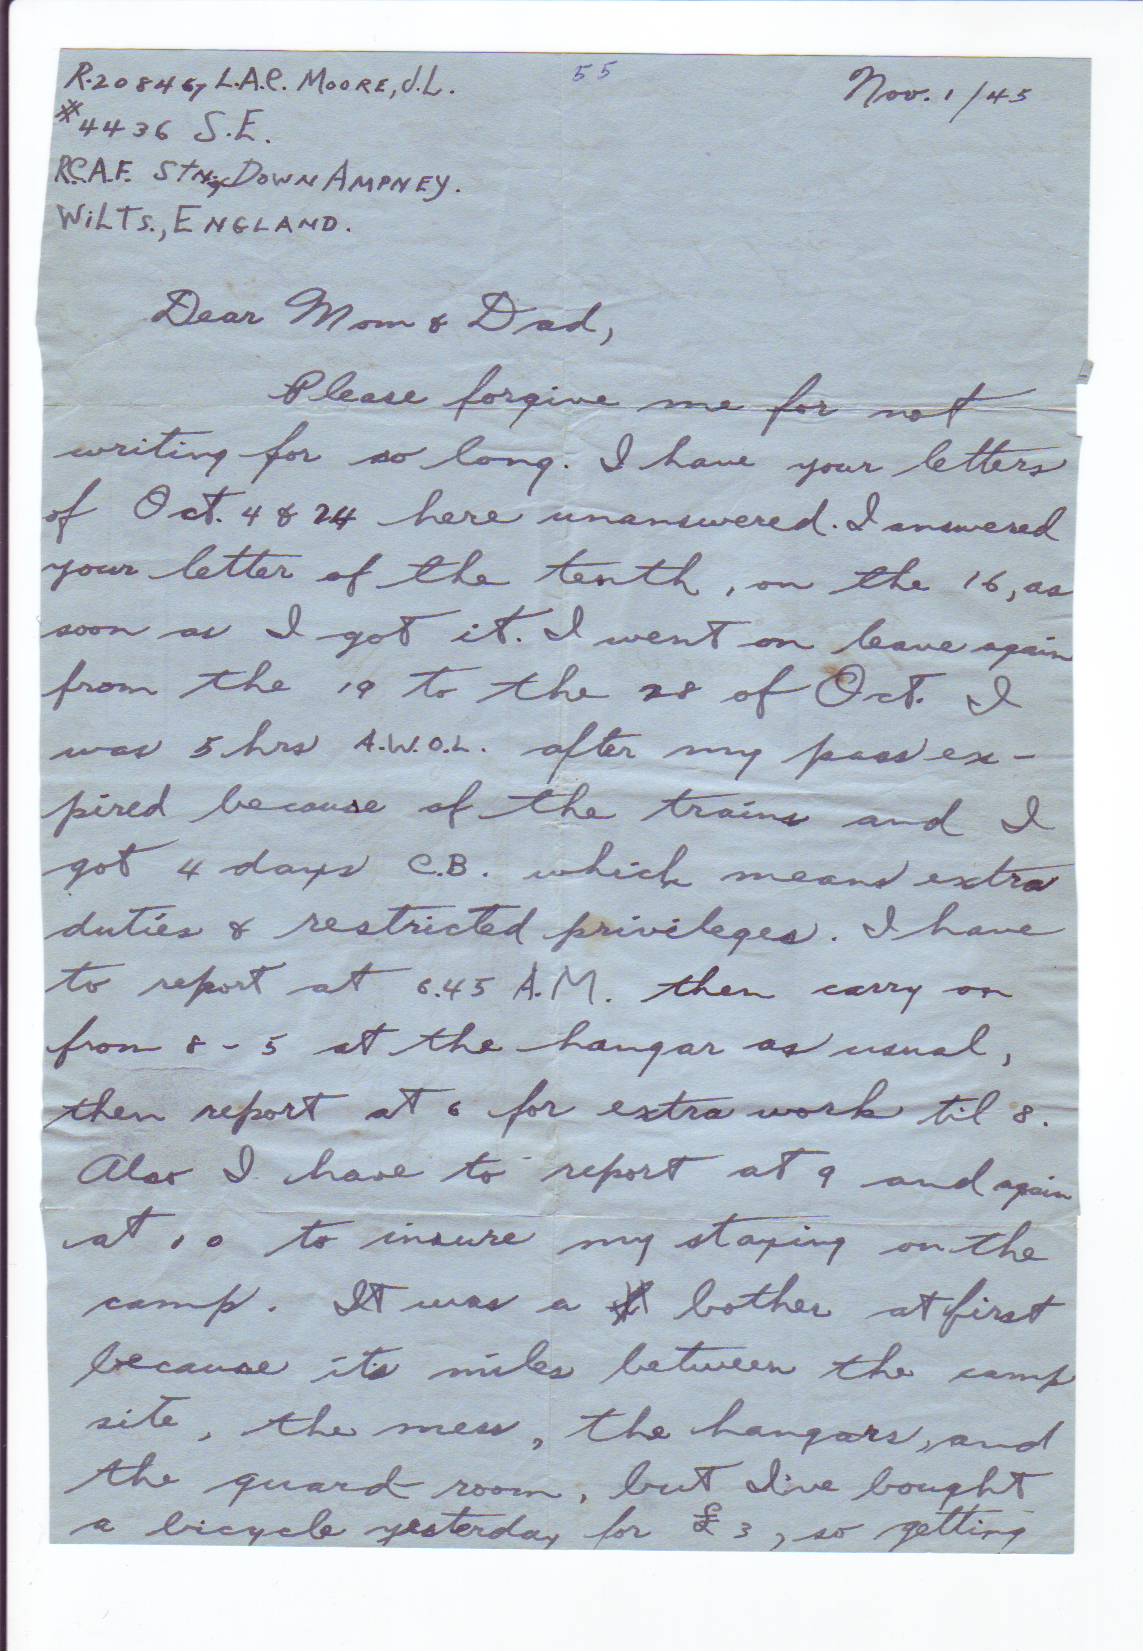 R.208467 L.A.C. MOORE, J.L.
55
Nov. 1/45
#4436 S.E.
R.C.A.F. STN., DOWN AMPNEY.
WILTS., ENGLAND.
Dear Mom & Dad,
Please forgive me for not
writing for so long. I have your letters
of Oct. 4 & 24 here unanswered. I answered
your letter of the tenth, on the 16, as
soon as I got it. I went on leave again
from the 19 to the 28 of Oct. I
was 5 hrs A.W.O.L. after my pass ex-
pired because of the trains and I
got 4 days C.B. which means extra
duties & restricted privileges. I have
to report at 6.45 A.M. then carry on
from 8 - 5 at the hangar as usual,
then report at 6 for extra work til 8.
Also I have to report at 9 and again
at 10 to insure my staying on the
camp. It was a bother at first
because its miles between the camp
site, the mess, the hangars, and
the guard room, but I've bought
a bicycle yesterday for £3, so getting